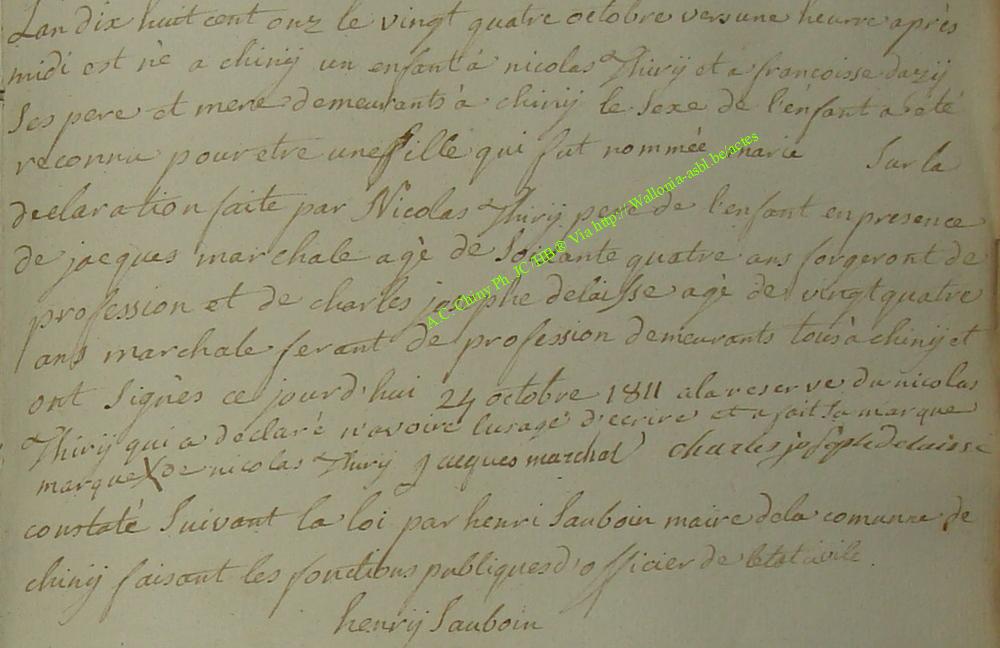 Lan dix huit cent onz le vingt quatre octobre vers une heurre après
midi est nè a chinÿ un enfant à nicolas Thirÿ et a francoisse dazÿ
Ses pere et mere demeurants à chinÿ le Sexe de l'énfant a èté
reconnu pour etre une fille qui fut nommèé marie Sur la
declaration faite par Nicolas Thirÿ pere de l'enfant en presence
de jacques marchale agè de Soixante quatre ans forgeront de
profession et de charles josephe delaisse agè de vingt quatre
ans marchale ferant de profession demeurants tous à chinÿ et
ont Signès ce jourd'hui 24 octobre 1811 a la reserve du nicolas
Thirÿ qui a dèclaré n'avoire lusage d'écrire et a fait Sa marque
marque X de nicolas Thirÿ Jacques marchal charles joseph delaisse
constaté Suivant la loi par henri Sauboin maire dela comunne de
chinÿ faisant les fonctions publiques d'officier de letat civile.
henrÿ Sauboin
A.C-Chiny Ph. JC /HB® Via http://Wallonia-asbl.be/actes